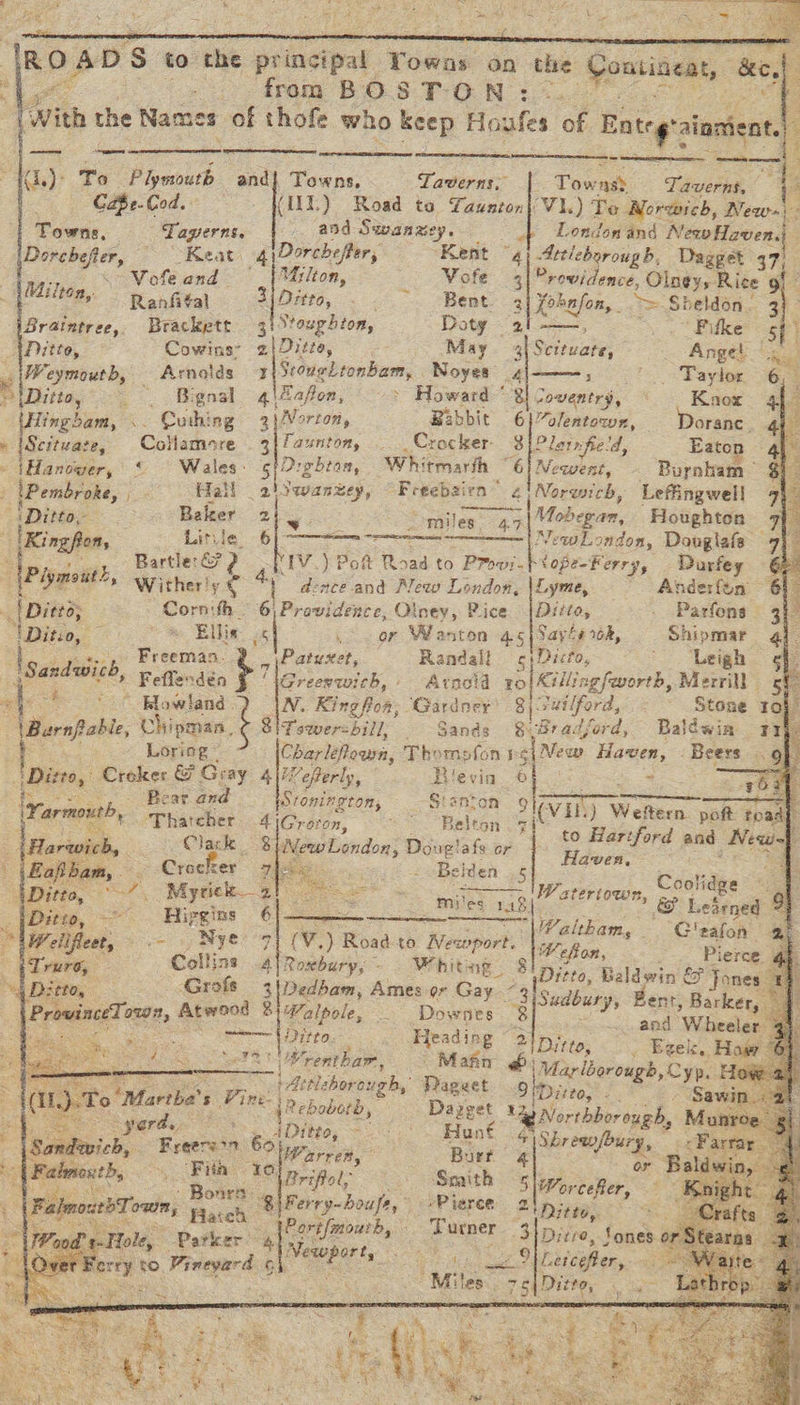 ROADS to the principal Towns on the Continent, &c.
from BOSTON :
With the Names of thoſe who keep Houſes of Entertainment.
(I.) To Plymouth and
Cape-Cod.
Towns. Taverns.
Dorcheſter, Keat 4
Milton, Voſe and Ranſital 3
Braintree, Brackett 3
Ditto, Cowins 2
Weymouth, Arnolds 1
Ditto, Bignal 4
Hingham, Cuſhing 3
Scituate, Collamore 3
Hanover, Wales 5
Pembroke, Hall 2
Ditto, Baker 2
Kingſton, Little 6
Plymouth, Bartlet & Witherly 4
Ditto, Corniſh 6
Ditto, Ellis 5
Sandwich, Freeman Feſſenden 7
Howland
Barnſtable, Chipman 8
Loring
Ditto, Croker & Gray 4
Yarmouth, Bear and Thatcher 4
Harwich, Clack 8
Eaſtham, Crocker 7
Ditto, Myrick 2
Ditto, Higgins 6
Wellfleet, Nye 7
Truro, Collins 4
Ditto, Groſs 3
ProvinceTown, Atwood 8
(II.) To Martha's Vine-
yard.
Sandwich, Freeman 60
Falmouth, Fiſh 10
FalmouthTown, Bourn Hatch 8
Wood's-Hole, Parker 4
Over Ferry to Vineyard 9
Towns. Taverns.
(III.) Road to Taunton
and Swanzey.
Dorcheſter, Kent 4
Milton, Voſe 3
Ditto, Bent 3
Stoughton, Doty 2
Ditto, May 3
Stoughtonham, Noyes 4
Eaſton, Howard 8
Norton, Babbit 6
Taunton, Crocker 8
Dighton, Whitmarſh 6
Swanzey, Freebairn
miles 47
(IV.) Poſt Road to Provi-
dence and New London.
Providence, Olney, Rice
or Wanton 45
Patuxet, Randall 5
Greenwich, Arnold 10
N. Kingſton, Gardner 8
Tower-hill, Sands 8
Charleſtown, Thompſon 15
Weſterly, Blevin 6
Stonington, Stanton 9
Groton, Belton 7
New London, Douglaſs or
Belden 5
miles 118
(V.) Road to Newport.
Roxbury, Whiting 8
Dedham, Ames or Gay 3
Walpole, Downes 8
Ditto Heading 2
Wrentham, Mann
Attleborough, Dagget 9
Rehoboth, Dagget
Ditto, Hunt 4
Warren, Burr 4
Briſtol, Smith 5
Ferry-houſe, Pierce 2
Portſmouth, Turner 3
Newport, 9
Miles 75
Towns. Taverns.
VI.) To Norwich, New-
London and New Haven.
Attleborough, Dagget 37
Providence, Olney, Rice 9
Johnſon, Sheldon 3
——, Fiſke 5
Scituate, Angel
——, Taylor 6
Coventry, Knox 4
Volentown, Doranc 4
Plainfield, Eaton 4
Newent, Burnham 8
Norwich, Leffingwell 7
Mohegan, Houghton 7
New London, Douglaſs 7
Rope-Ferry, Durfey 6
Lyme, Anderſon 6
Ditto, Parſons 3
Saybrook, Shipmar 4
Ditto, Leigh 5
Killingſworth, Merrill 5
Guilford, Stone 10
Bradford, Baldwin 11
New Haven, Beers 9
(VII.) Weſtern poſt road
to Hartford and New-
Haven.
Watertown, Coolidge & Learned 9
Waltham, Gleaſon 2
Weſton, Pierce 4
Ditto, Baldwin & Jones 1
Sudbury, Bent, Barker,
and Wheeler 3
Ditto, Ezek. How 6
Marlborough, Cyp. How 2
Ditto, Sawin 2
Northborough, Munroe 5
Shrewſbury, Farrar 4
or Baldwin,
Worceſter, Knight 4
Ditto, Crafts 2
Ditto, Jones or Stearns 1
Leiceſter, Waite 4
Ditto, Lathrop